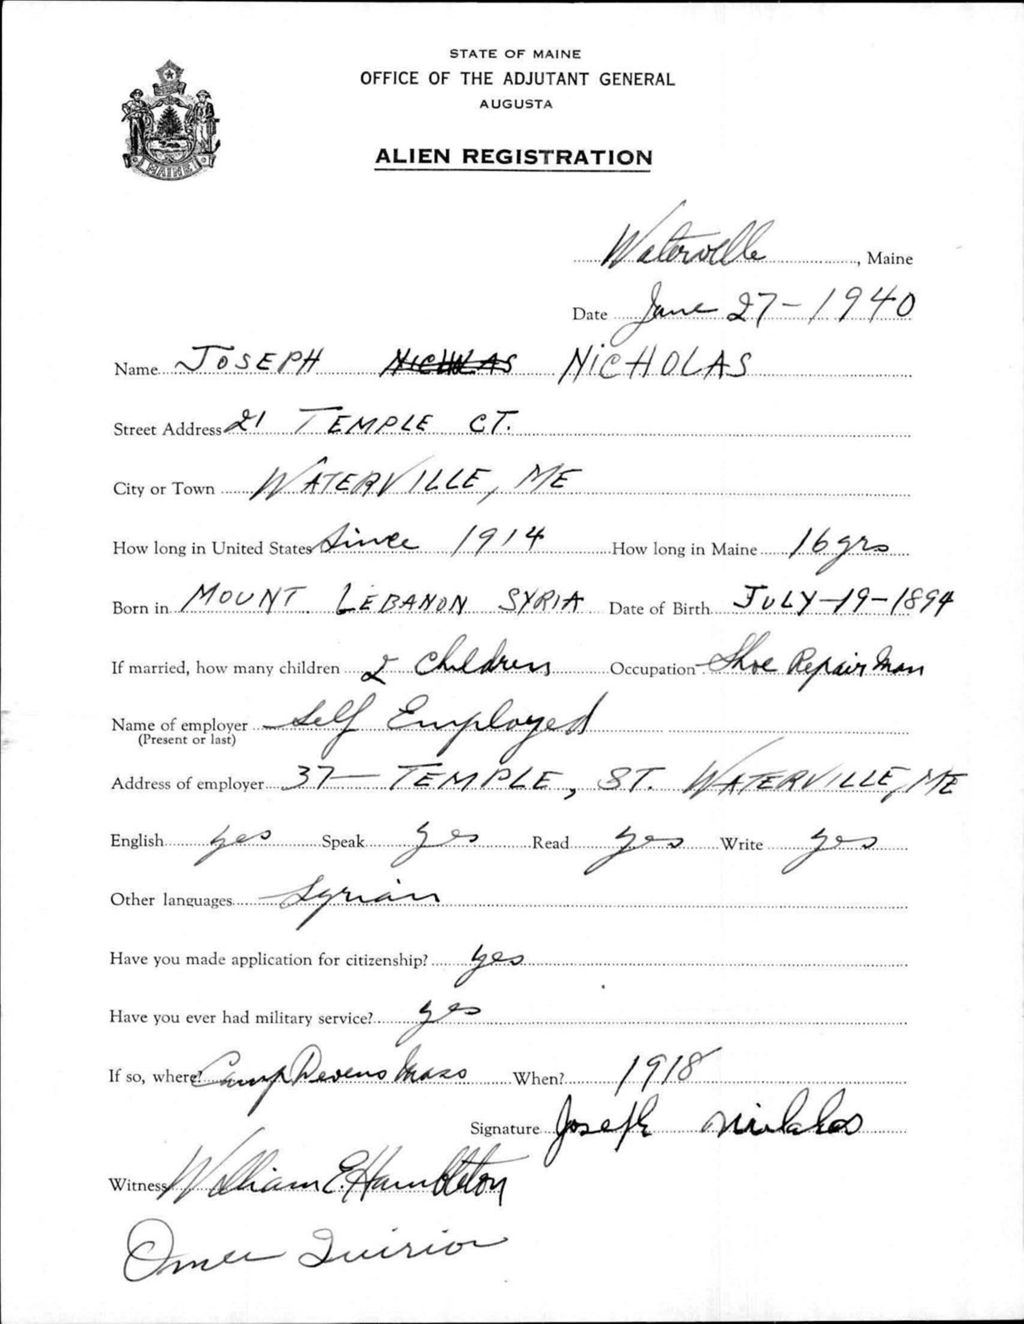 STATE OF MAINE
OFFICE OF THE ADJUTANT GENERAL
AUGUSTA
ALIEN REGISTRATION
MAINE
Waterville, Maine
Date June 27-1940
Name JOSEPH NICHOLAS NICHOLAS
Street Address 21 TEMPLE CT.
City or Town WATERVILLE, ME
How long in United States Since 1914 How long in Maine 16 yrs
Born in MOUNT LEBANON SYRIA Date of Birth JULY-19-1894
If married, how many children 2 Children Occupation Shoe Repair Man
Name of employer Self Employed
(Present or last)
Address of employer 37- TEMPLE, ST. WATERVILLE, ME
English yes Speak yes Read yes Write yes
Other languages Syrian
Have you made application for citizenship? yes
Have you ever had military service? yes
If so, where? Camp Devens Mass When? 1918
Signature Joseph
Witness William E. Hambleton
Omer